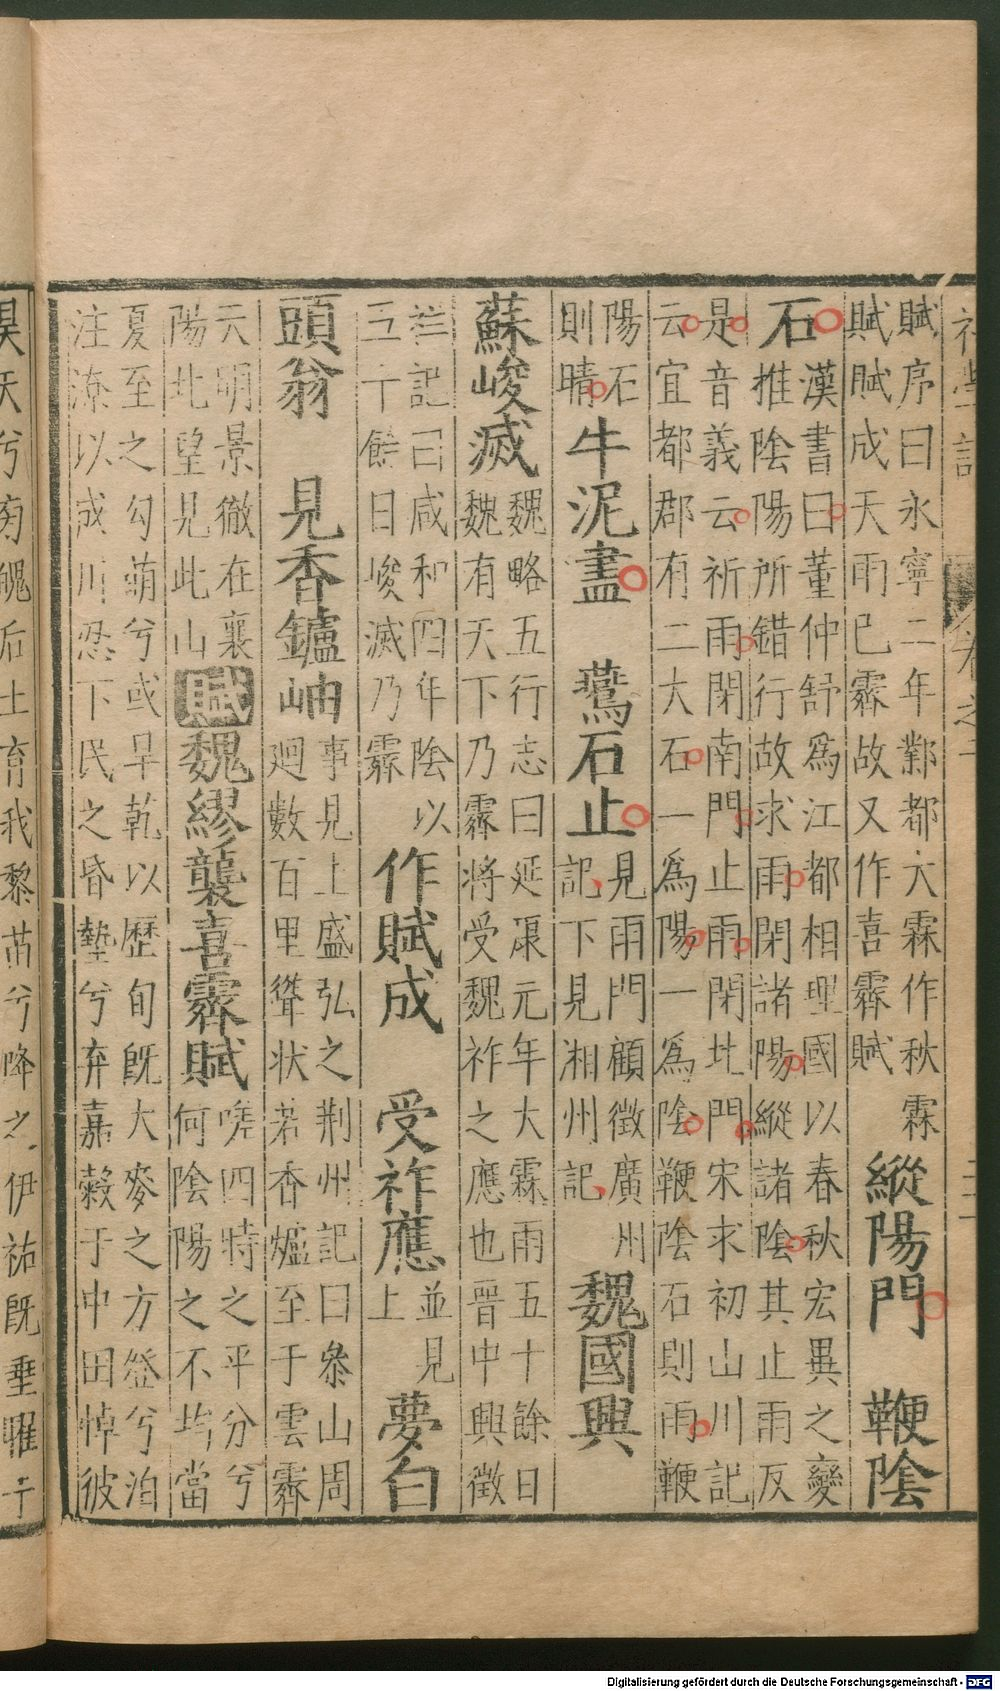 初學記 卷之二
賦序曰永寧二年鄴都大霖作秋霖
賦賦成天雨已霽故又作喜霽賦
縱陽門 鞭陰
石
漢書曰董仲舒爲江都相理國以春秋宏異之變
推陰陽所錯行故求雨閉諸陽縱諸陰其止雨反
是音義云祈雨閉南門止雨閉北門宋求初山川記
云宜都郡有二大石一爲陽一爲陰鞭陰石則雨鞭
陽石
則晴
牛泥盡 鷰石止
見雨門顧徵廣州
記下見湘州記
魏國興
蘇峻滅
魏略五行志曰延康元年大霖雨五十餘日
魏有天下乃霽將受魏祚之應也晉中興徵
祥記曰咸和四年陰以
五十餘日峻滅乃霽
作賦成 受祚應
並見
上
夢白
頭翁 見香鑪岫
事見上盛弘之荆州記曰衆山周
廻數百里聳状若香爐至于雲霽
天明景徹在襄
陽北望見此山
賦
魏繆襲喜霽賦
嗟四時之平分兮
何陰陽之不均當
夏至之勾萌兮或旱乾以歷旬旣大麥之方登兮洎
注潦以成川忍下民之昏墊兮弃嘉穀于中田悼彼
昊天兮 后土育我黎苗兮降之伊祐旣垂曜于
Digitalisierung gefördert durch die Deutsche Forschungsgemeinschaft - DFG